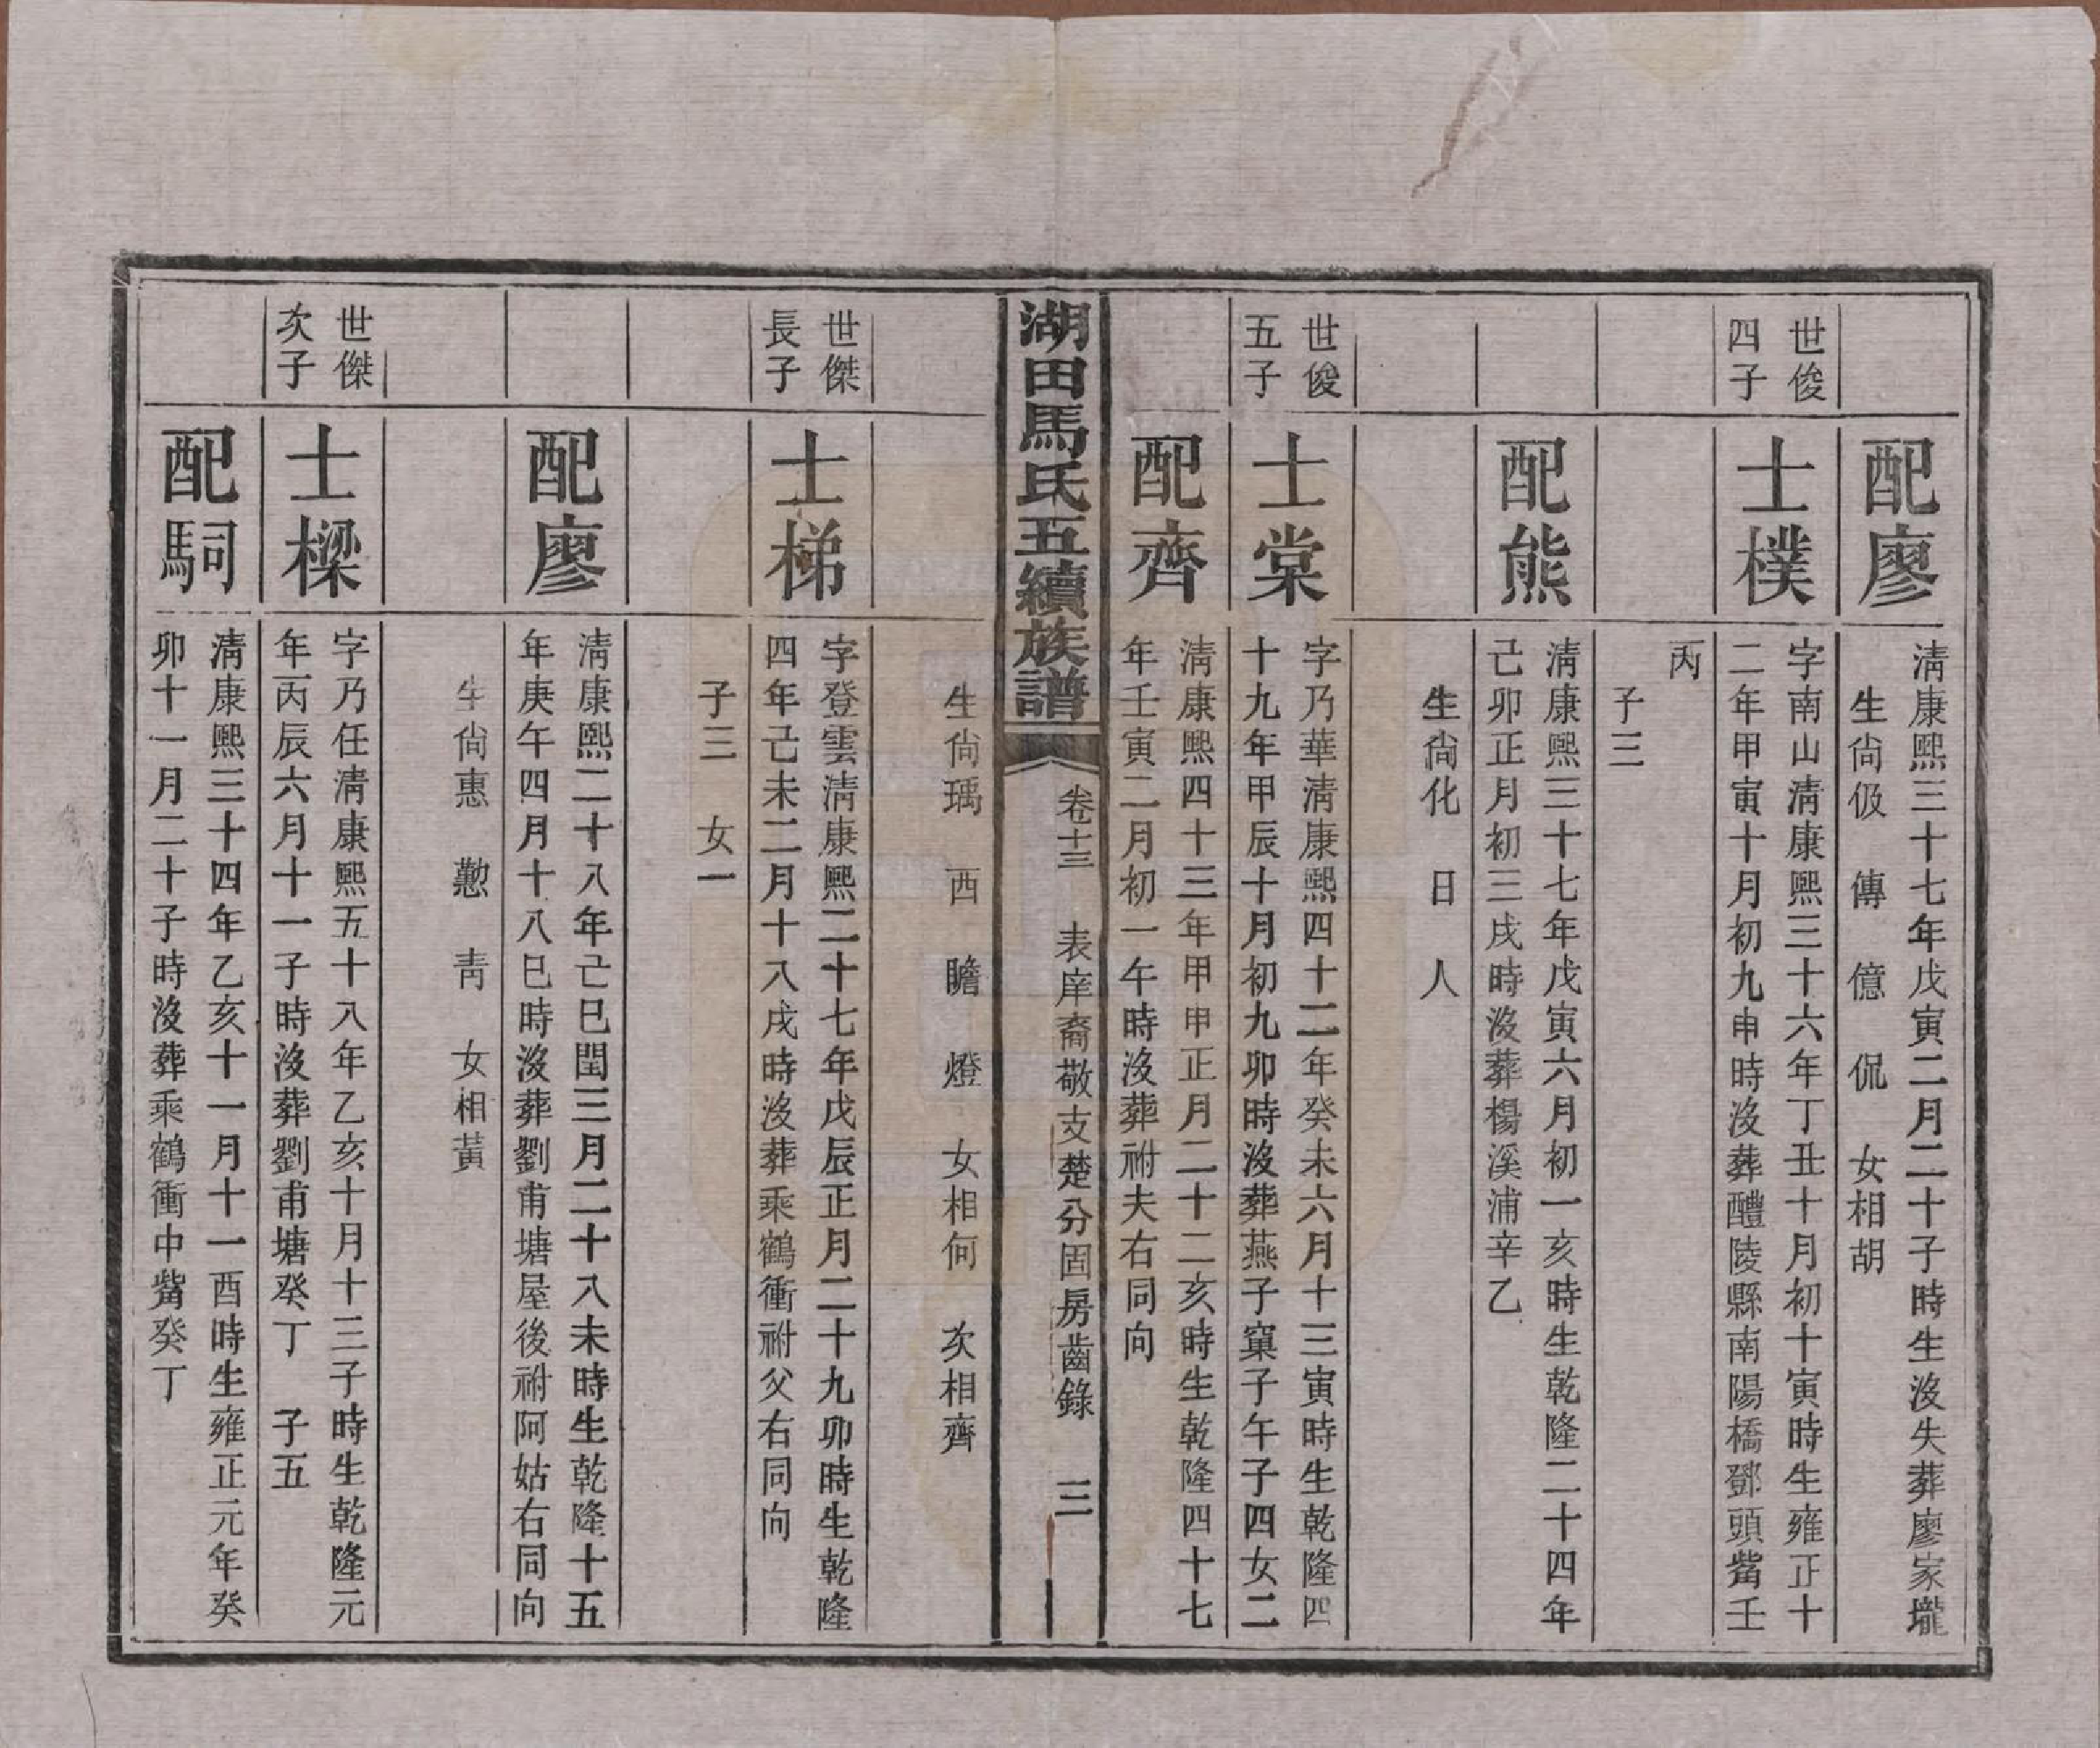 配廖
清康熙三十七年戊寅二月二十子時生沒失葬廖家壠
生尙伋　傳　億　侃　女相胡
世俊
四子
士樸
字南山清康熙三十六年丁丑十月初十寅時生雍正十
二年甲寅十月初九申時沒葬醴陵縣南陽橋鄧頭嘴壬
丙
子三
配熊
清康熙三十七年戊寅六月初一亥時生乾隆二十四年
己卯正月初三戌時沒葬楊溪浦辛乙
生尙化　日　人
世俊
五子
士棠
字乃華清康熙四十二年癸未六月十三寅時生乾隆四
十九年甲辰十月初九卯時沒葬燕子窠子午子四女二
配齊
清康熙四十三年甲申正月二十二亥時生乾隆四十七
年壬寅二月初一午時沒葬祔夫右同向
湖田馬氏五續族譜
卷十三　表庠裔敬支楚分固房齒錄　三
生尙瑀　西　瞻　燈　女相何　次相齊
世傑
長子
士梯
字登雲清康熙二十七年戊辰正月二十九卯時生乾隆
四年己未二月十八戌時沒葬乘鶴衝祔父右同向
子三　女一
配廖
清康熙二十八年己巳閏三月二十八未時生乾隆十五
年庚午四月十八巳時沒葬劉甫塘屋後祔阿姑右同向
生尙惠　懃　靑　女相黃
世傑
次子
士樑
字乃任清康熙五十八年乙亥十月十三子時生乾隆元
年丙辰六月十一子時沒葬劉甫塘癸丁　子五
配駉
清康熙三十四年乙亥十一月十一酉時生雍正元年癸
卯十一月二十子時沒葬乘鶴衝中嘴癸丁